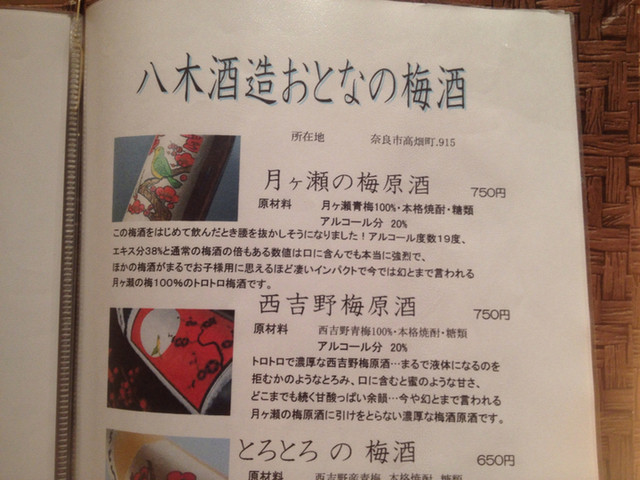 八木酒造おとなの梅酒
所在地 奈良市高畑町.915
月ヶ瀬の梅原酒 750円
原材料 月ヶ瀬青梅100%・本格焼酎・糖類
アルコール分 20%
この梅酒をはじめて飲んだとき腰を抜かしそうになりました！アルコール度数19度、
エキス分38%と通常の梅酒の倍もある数値は口に含んでも本当に強烈で、
ほかの梅酒がまるでお子様用に思えるほど凄いインパクトで今では幻とまで言われる
月ヶ瀬の梅100%のトロトロ梅酒です。
西吉野梅原酒 750円
原材料 西吉野青梅100%・本格焼酎・糖類
アルコール分 20%
トロトロで濃厚な西吉野梅原酒…まるで液体になるのを
拒むかのようなとろみ、口に含むと蜜のような甘さ、
どこまでも続く甘酸っぱい余韻…今や幻とまで言われる
月ヶ瀬の梅原酒に引けをとらない濃厚な梅酒原酒です。
とろとろ の 梅酒 650円
原材料 西吉野産青梅、本格焼酎、糖類